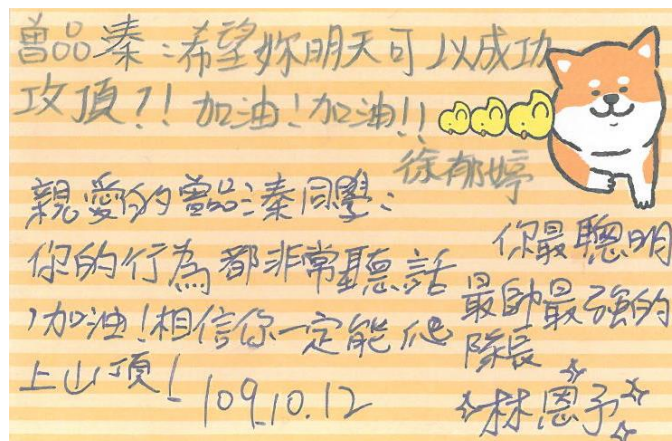 曾品蓁：希望妳明天可以成功
攻頂？！加油！加油！！
徐郁婷
親愛的曾品溱同學：
你的行為都非常聽話
，加油！相信你一定能爬
上山頂！
109.10.12
你最聰明
最帥最強的
隊長
林恩予